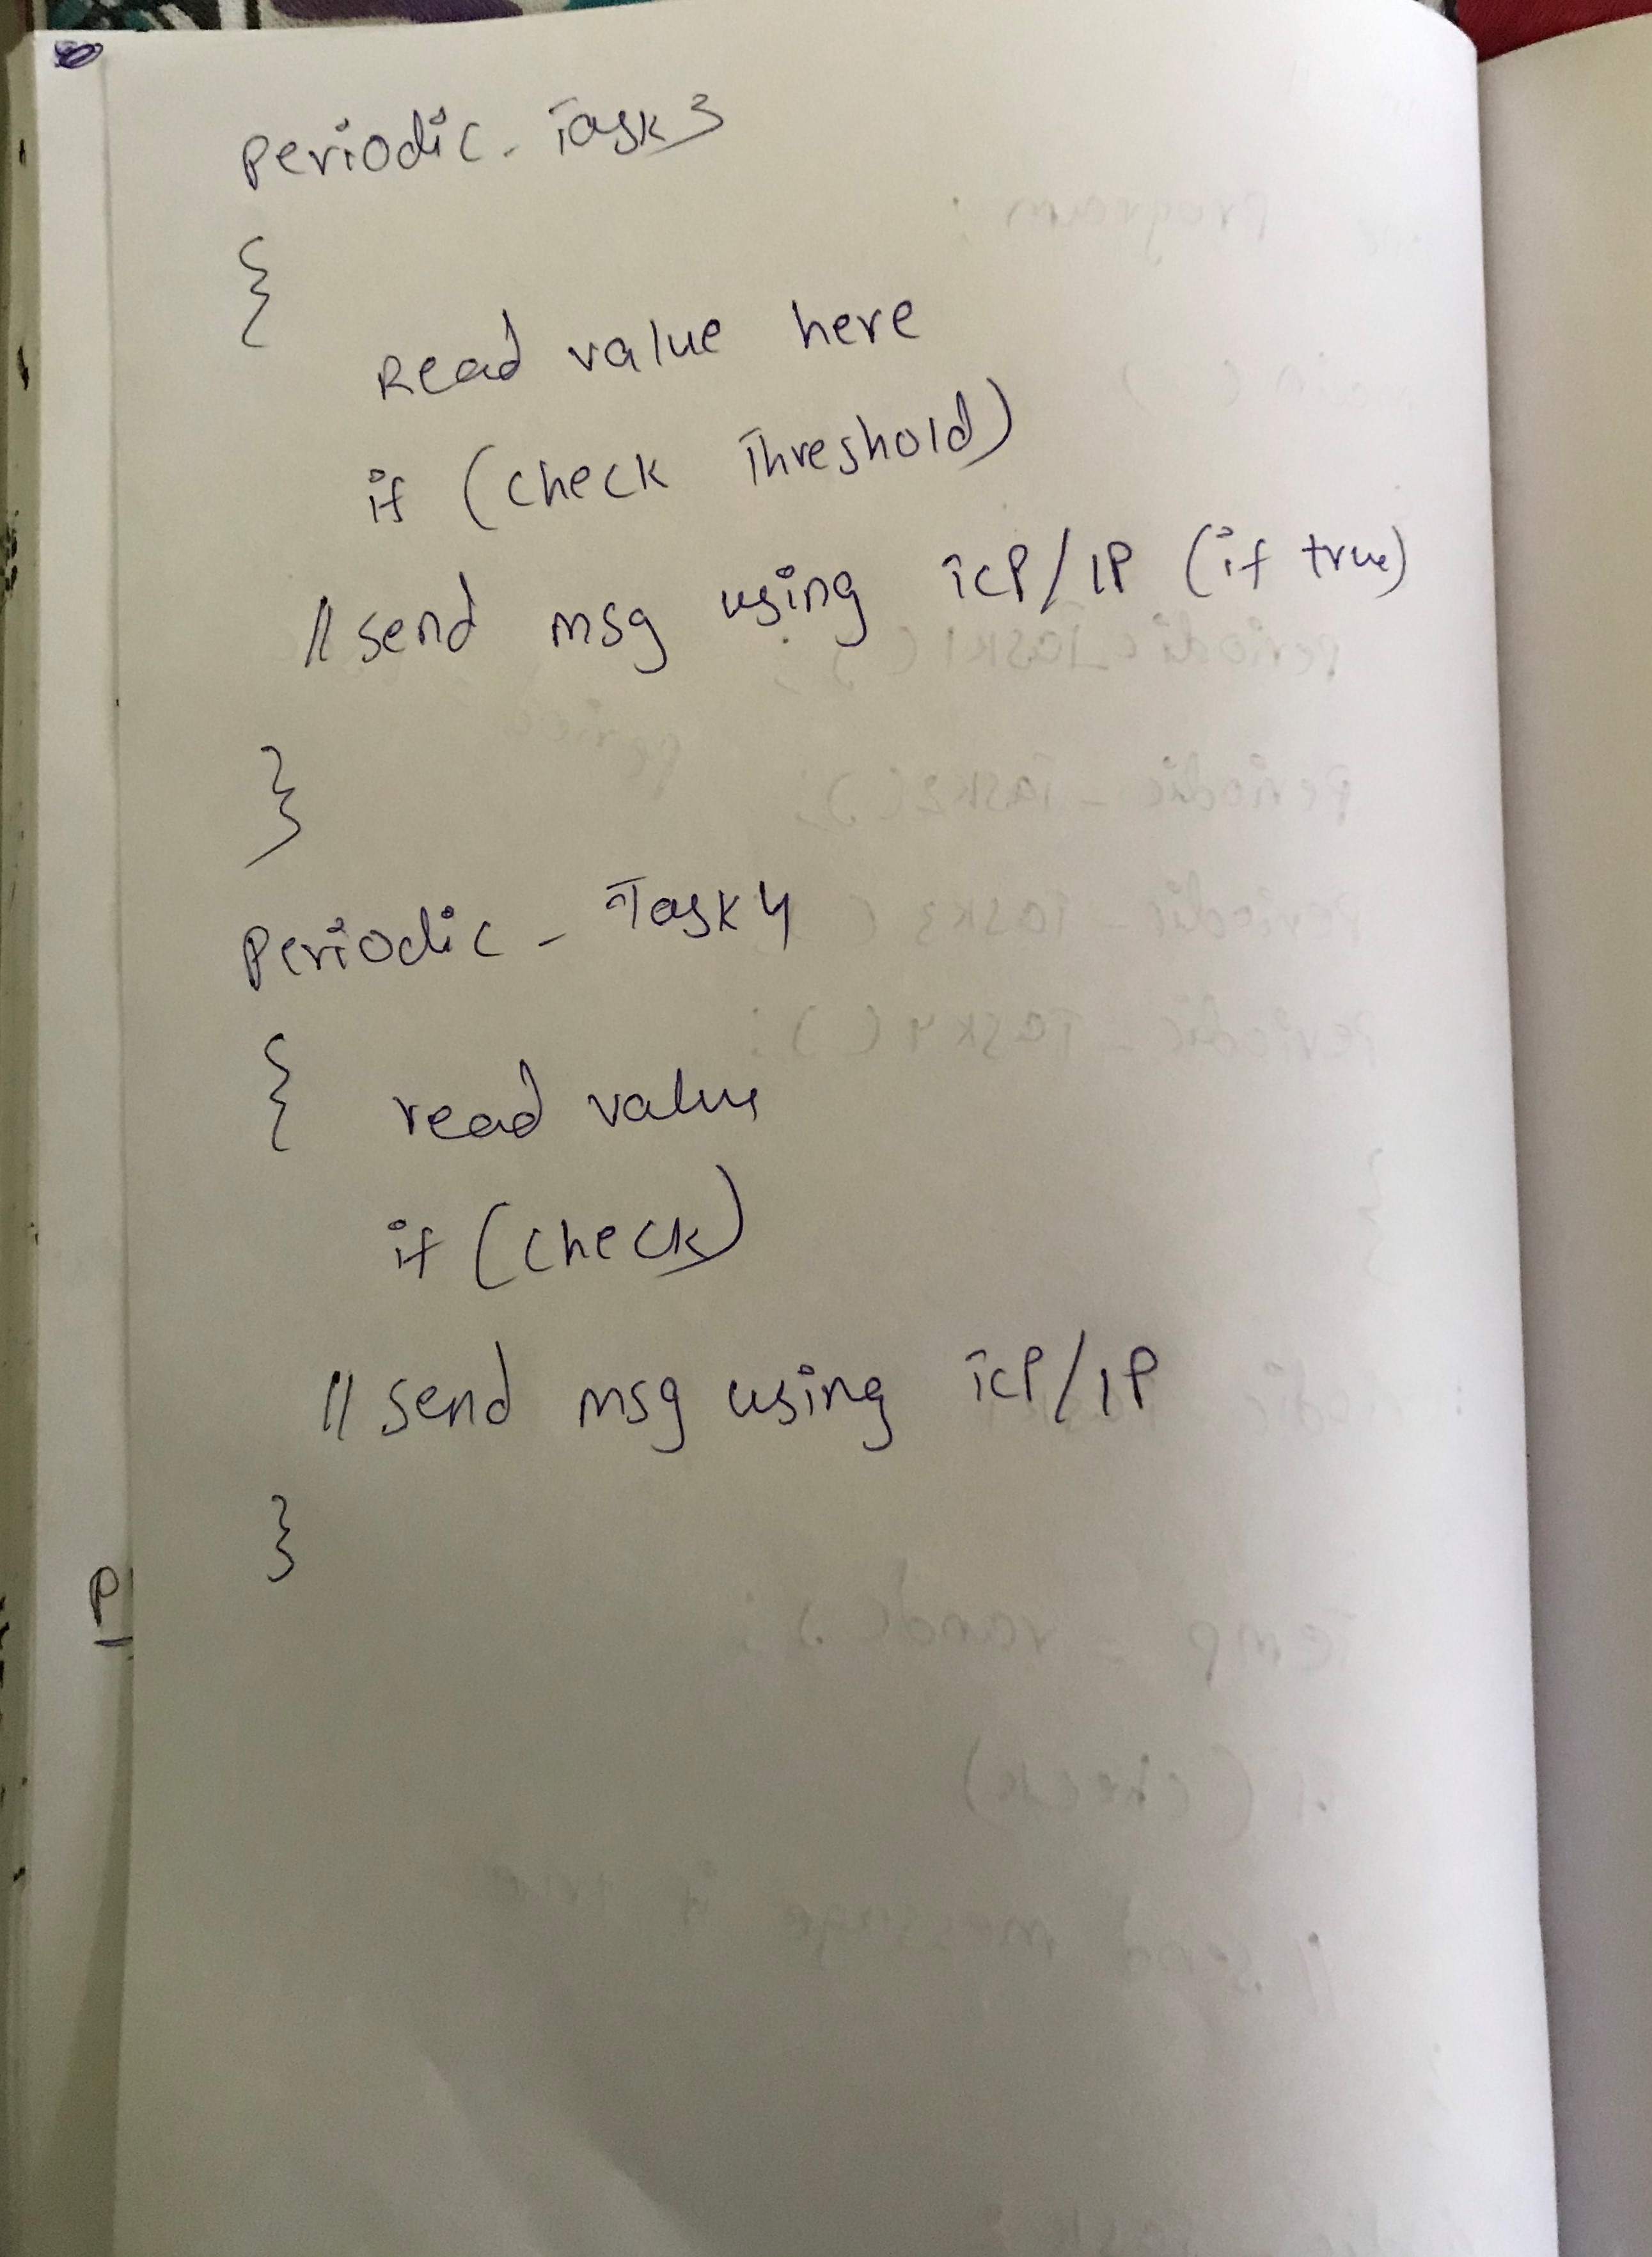 Periodic_Task3
{
Read value here
if (check Threshold)
// send msg using TCP/IP (if true)
}
Periodic_Task4
{ read value
if (check)
// send msg using TCP/IP
}
P